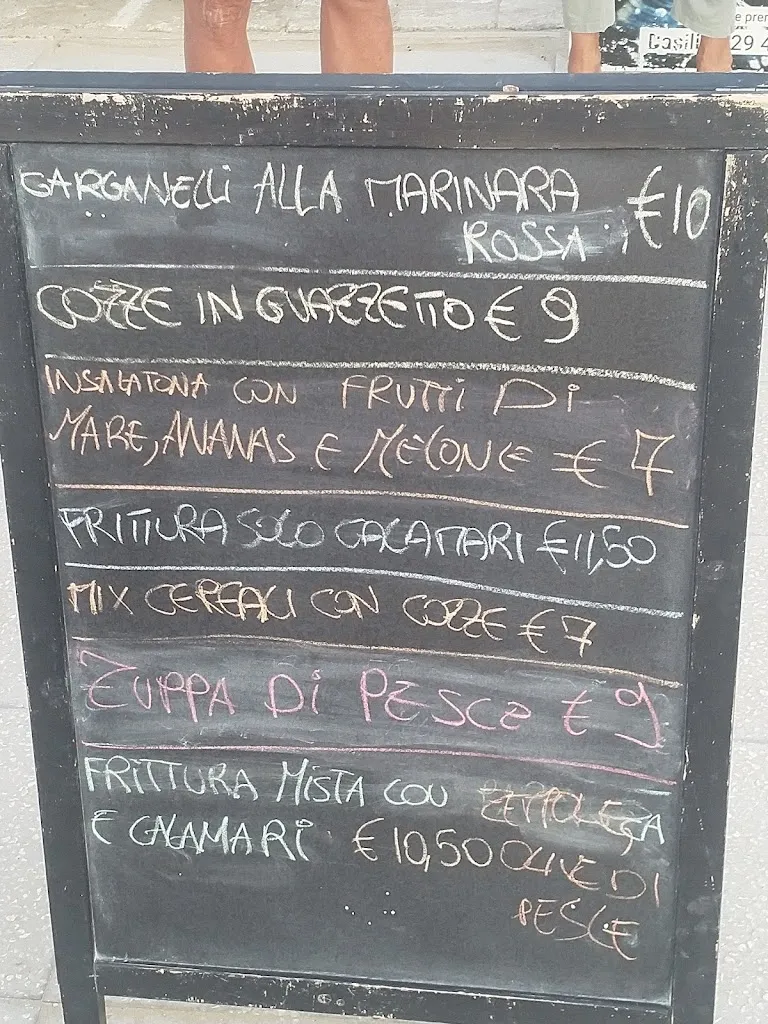 e pren
29 4
GARGANELLI ALLA MARINARA €10
ROSSA
COZZE IN GUAZZETTO € 9
INSALATONA CON FRUTTI DI
MARE, ANANAS E MELONE € 7
FRITTURA SOLO CALAMARI €11,50
MIX CEREALI CON COZZE €7
ZUPPA DI PESCE € 9
FRITTURA MISTA CON
E CALAMARI € 10,50 OLIVE DI
PESCE